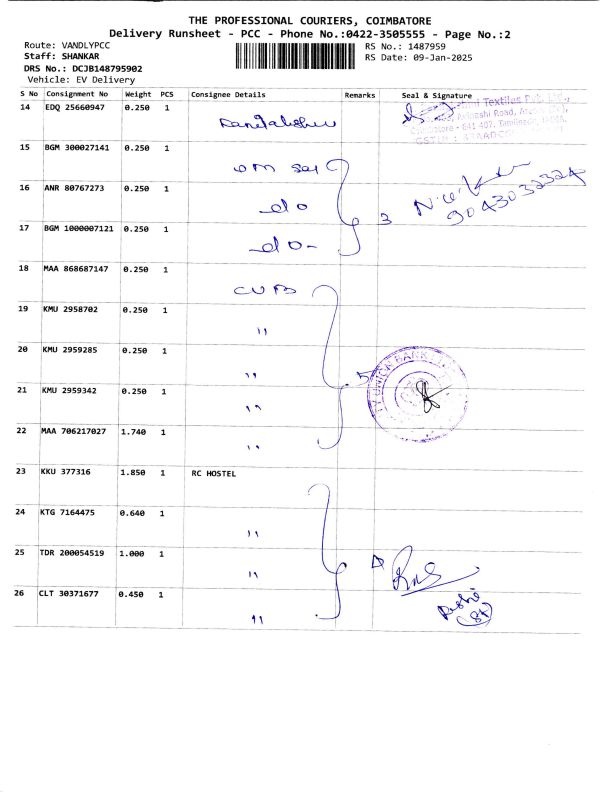 THE PROFESSIONAL COURIERS, COIMBATORE
Delivery Runsheet - PCC - Phone No.:0422-3505555 - Page No.:2
Route: VANDLYPCC
RS No.: 1487959
Staff: SHANKAR
RS Date: 09-Jan-2025
DRS No.: DCJB148795902
Vehicle: EV Delivery
S No Consignment No Weight PCS Consignee Details Remarks Seal & Signature
14 EDQ 25660947 0.250 1
Textiles
15 BGM 300027141 0.250 1 om sai
16 ANR 80767273 0.250 1 do 3
9043032324
17 BGM 1000007121 0.250 1 do-
18 MAA 868687147 0.250 1 CUB
19 KMU 2958702 0.250 1 "
20 KMU 2959285 0.250 1 " 5
UNION BANK
21 KMU 2959342 0.250 1 "
22 MAA 706217027 1.740 1 "
23 KKU 377316 1.850 1 RC HOSTEL
24 KTG 7164475 0.640 1 "
25 TDR 200054519 1.000 1 "
26 CLT 30371677 0.450 1 "